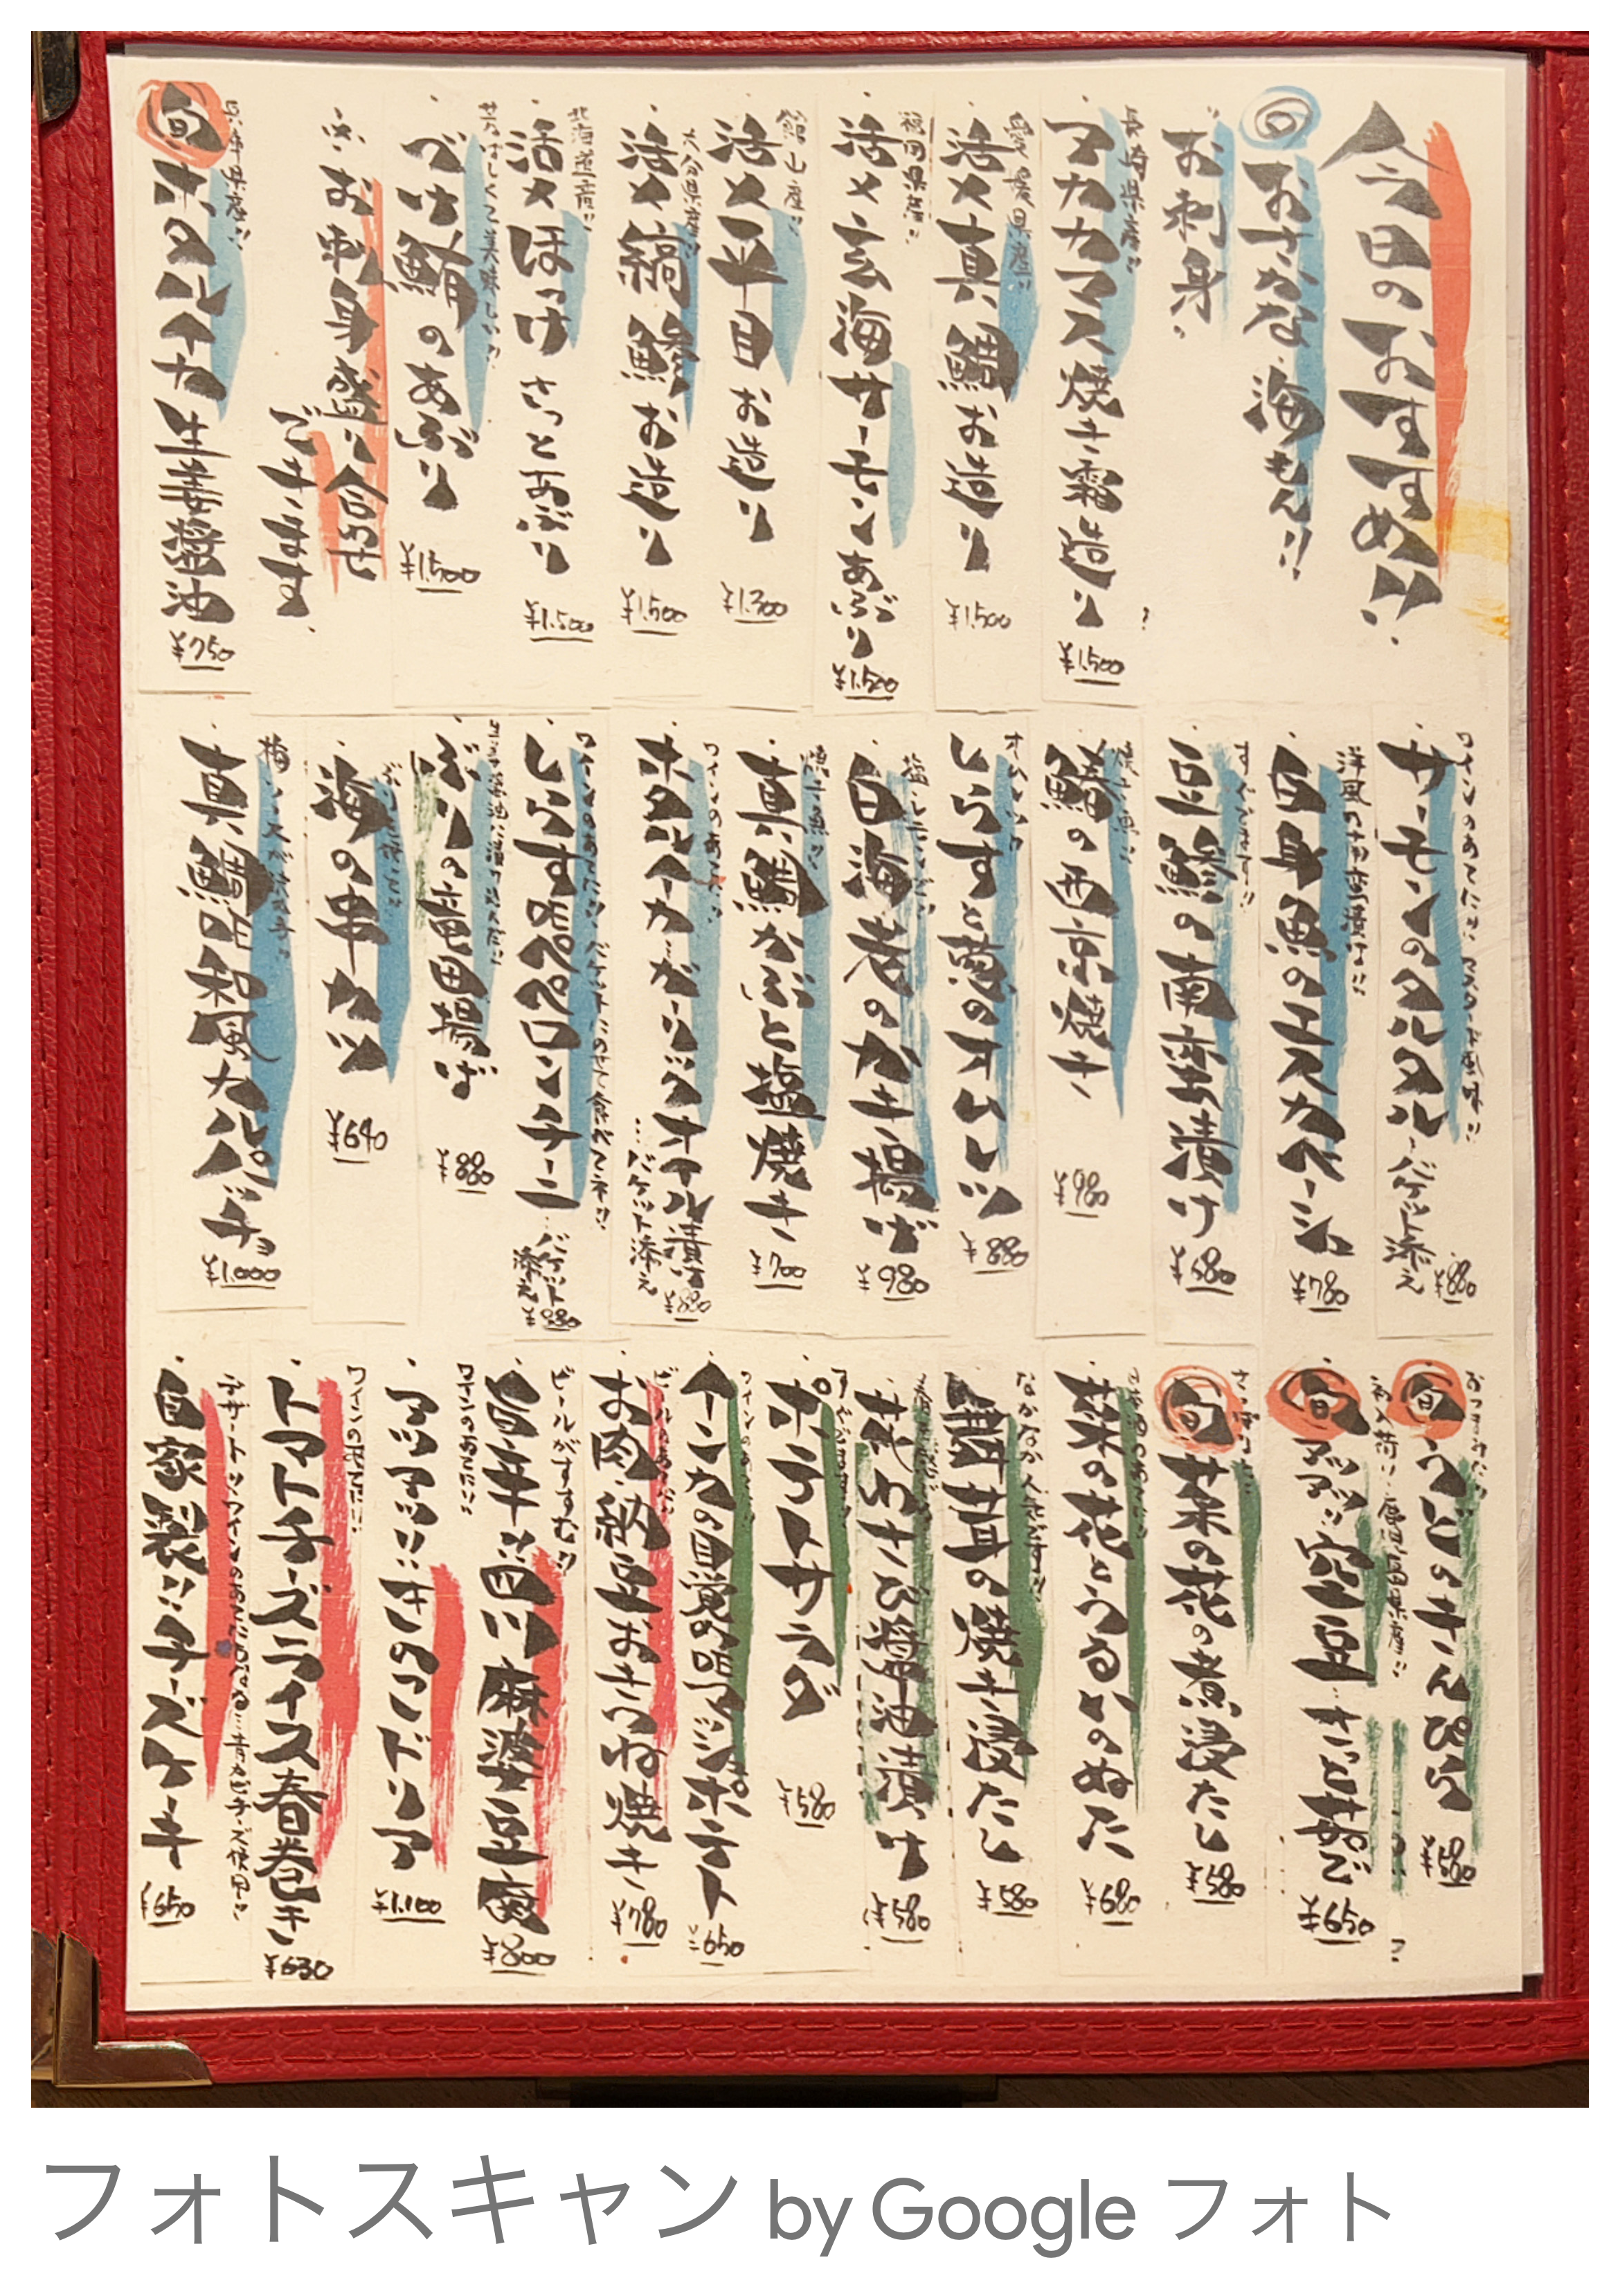 今日のおすすめ!!
おさかな海もん!!
お刺身
長崎県産!!
アカカマス焼き霜造り ¥1,500
愛媛県産!!
活〆真鯛お造り ¥1,500
福岡県産!!
活〆玄海サーモンあぶり ¥1,500
館山産!!
活〆平目お造り ¥1,300
大分県産!!
活〆縞鯵お造り ¥1,500
北海道産!!
活〆ほっけさっとあぶり ¥1,500
芳ばしくて美味しい!!
づけ鮪のあぶり ¥1,500
※お刺身盛り合わせ
できます。
兵庫県産!!
旬 ホタルイカ生姜醤油 ¥750
ワインのあてに!! マスタード風味!!
サーモンのタルタル バゲット添え ¥880
洋風の南蛮漬け!!
白身魚のエスカベーシュ ¥780
すぐでます!!
豆鯵の南蛮漬け ¥580
焼き魚!!
鰆の西京焼き ¥980
オムレツ!!
しらすと葱のオムレツ ¥880
白海老のかき揚げ ¥980
焼き魚!!
真鯛かぶと塩焼き ¥700
ワインのあてに!!
ホタルイカ…ガーリックオイル漬け
…バゲット添え ¥880
ワインのあてに!! バゲットにのせて食べてネ!!
しらす ペペロンチーニ バゲット添え ¥880
ぶりの竜田揚げ ¥880
海の串カツ ¥640
真鯛 和風カルパッチョ ¥1,000
おつまみに!!
旬 うどのきんぴら ¥580
初入荷!! 鹿児島県産!!
旬 アツアツ!! 空豆 さっと茹で ¥650
旬 菜の花の煮浸たし ¥580
菜の花とうるいのぬた ¥680
なかなか人気です!!
舞茸の焼き浸たし ¥580
花わさび醤油漬け ¥580
ポテトサラダ ¥580
ワインのあてに!!
インカの目覚め マッシュポテト ¥650
ビールのあてに!!
お肉納豆おきつね焼き ¥780
ビールがすすむ!!
旨辛!! 四川麻婆豆腐 ¥800
ワインのあてに!!
アツアツ!! きのこドリア ¥1,100
ワインのあてに!!
トマトチーズライス春巻き ¥630
デザート!! ワインのあてにもなる…青カビチーズ使用!!
自家製!! チーズケーキ ¥650
フォトスキャン by Google フォト